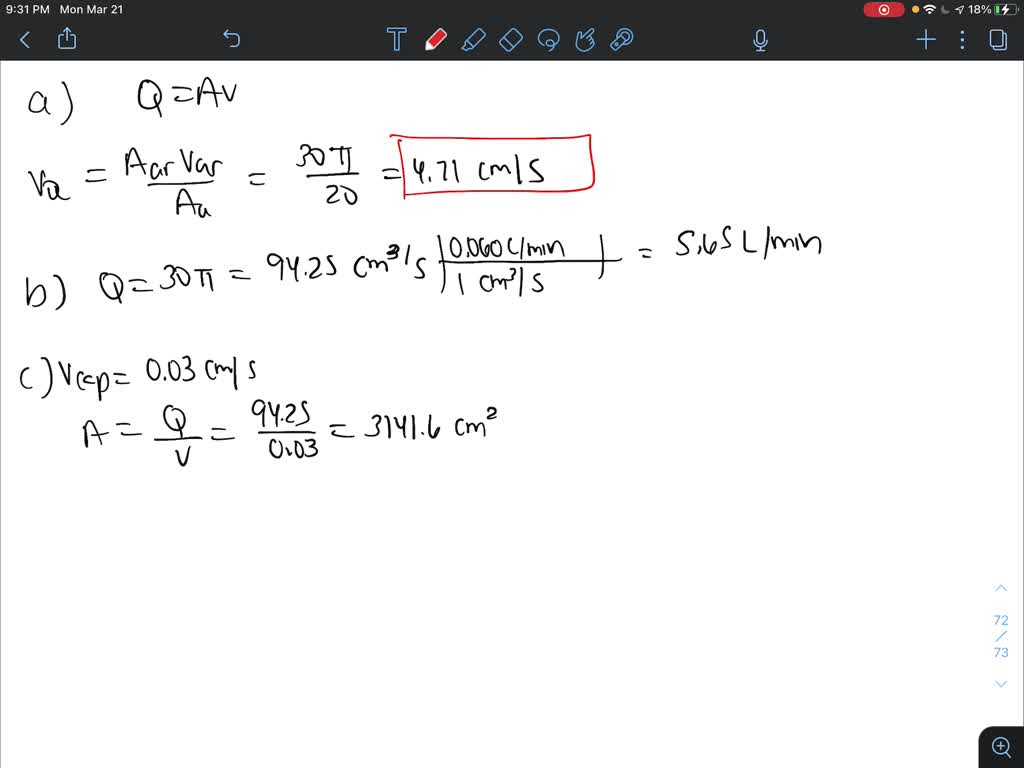 9:31 PM Mon Mar 21
18%
T
a) Q = AV
Va = Aar Var / Aa = 30π / 20 = 4.71 cm/s
b) Q = 30π = 94.25 cm³/s | 0.060 L/min / 1 cm³/s | = 5.65 L/min
c) Vcap = 0.03 cm/s
A = Q / V = 94.25 / 0.03 = 3141.6 cm²
72
/
73